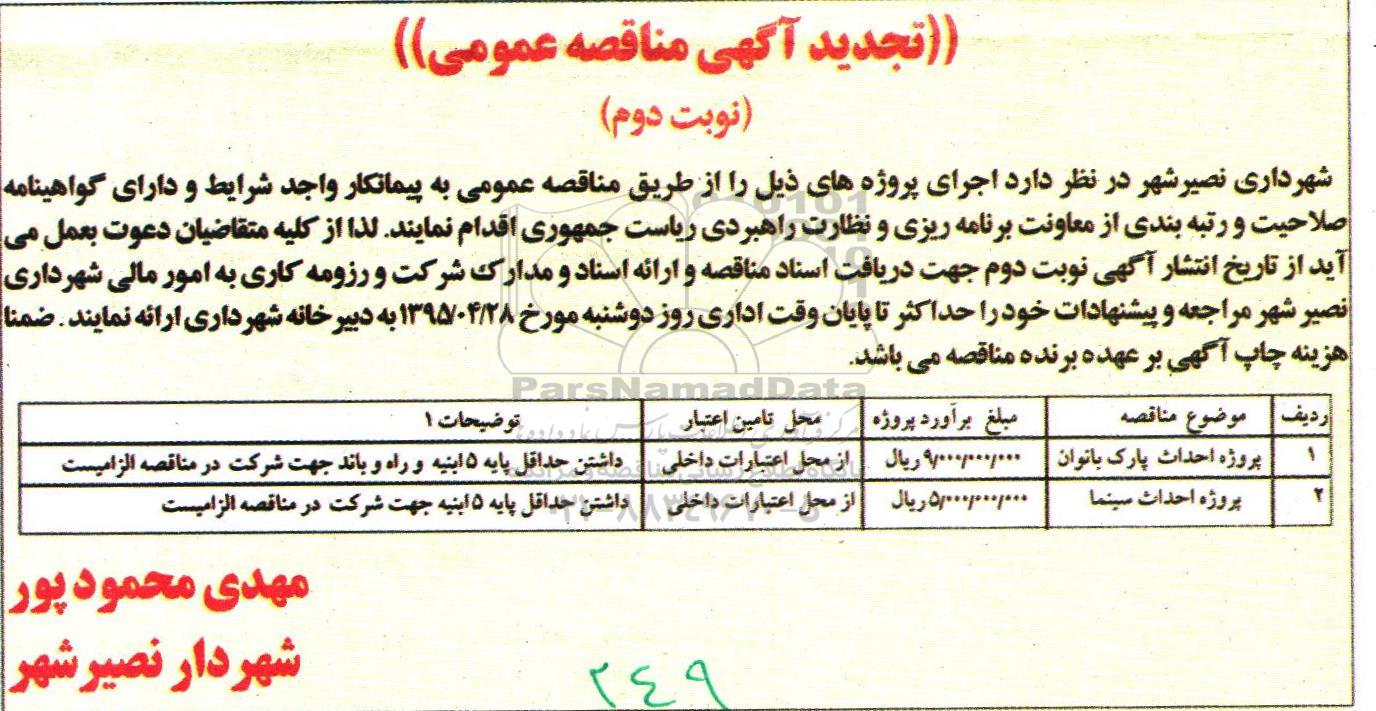 ((تجدید آگهی مناقصه عمومی))
(نوبت دوم)
شهرداری نصیرشهر در نظر دارد اجرای پروژه های ذیل را از طریق مناقصه عمومی به پیمانکار واجد شرایط و دارای گواهینامه
صلاحیت و رتبه بندی از معاونت برنامه ریزی و نظارت راهبردی ریاست جمهوری اقدام نمایند. لذا از کلیه متقاضیان دعوت بعمل می
آید از تاریخ انتشار آگهی نوبت دوم جهت دریافت اسناد مناقصه و ارائه اسناد و مدارک شرکت و رزومه کاری به امور مالی شهرداری
نصیر شهر مراجعه و پیشنهادات خود را حداکثر تا پایان وقت اداری روز دوشنبه مورخ ۱۳۹۵/۰۴/۲۸ به دبیرخانه شهرداری ارائه نمایند . ضمنا
هزینه چاپ آگهی بر عهده برنده مناقصه می باشد.
ParsNamadData
ردیف موضوع مناقصه مبلغ برآورد پروژه محل تامین اعتبار توضیحات ۱
۱ پروژه احداث پارک بانوان ۹/۰۰۰/۰۰۰/۰۰۰ ریال از محل اعتبارات داخلی داشتن حداقل پایه ۵ ابنیه و راه و باند جهت شرکت در مناقصه الزامیست
۲ پروژه احداث سینما ۵/۰۰۰/۰۰۰/۰۰۰ ریال از محل اعتبارات داخلی داشتن حداقل پایه ۵ ابنیه جهت شرکت در مناقصه الزامیست
مهدی محمود پور
شهردار نصیر شهر
۲۴۹